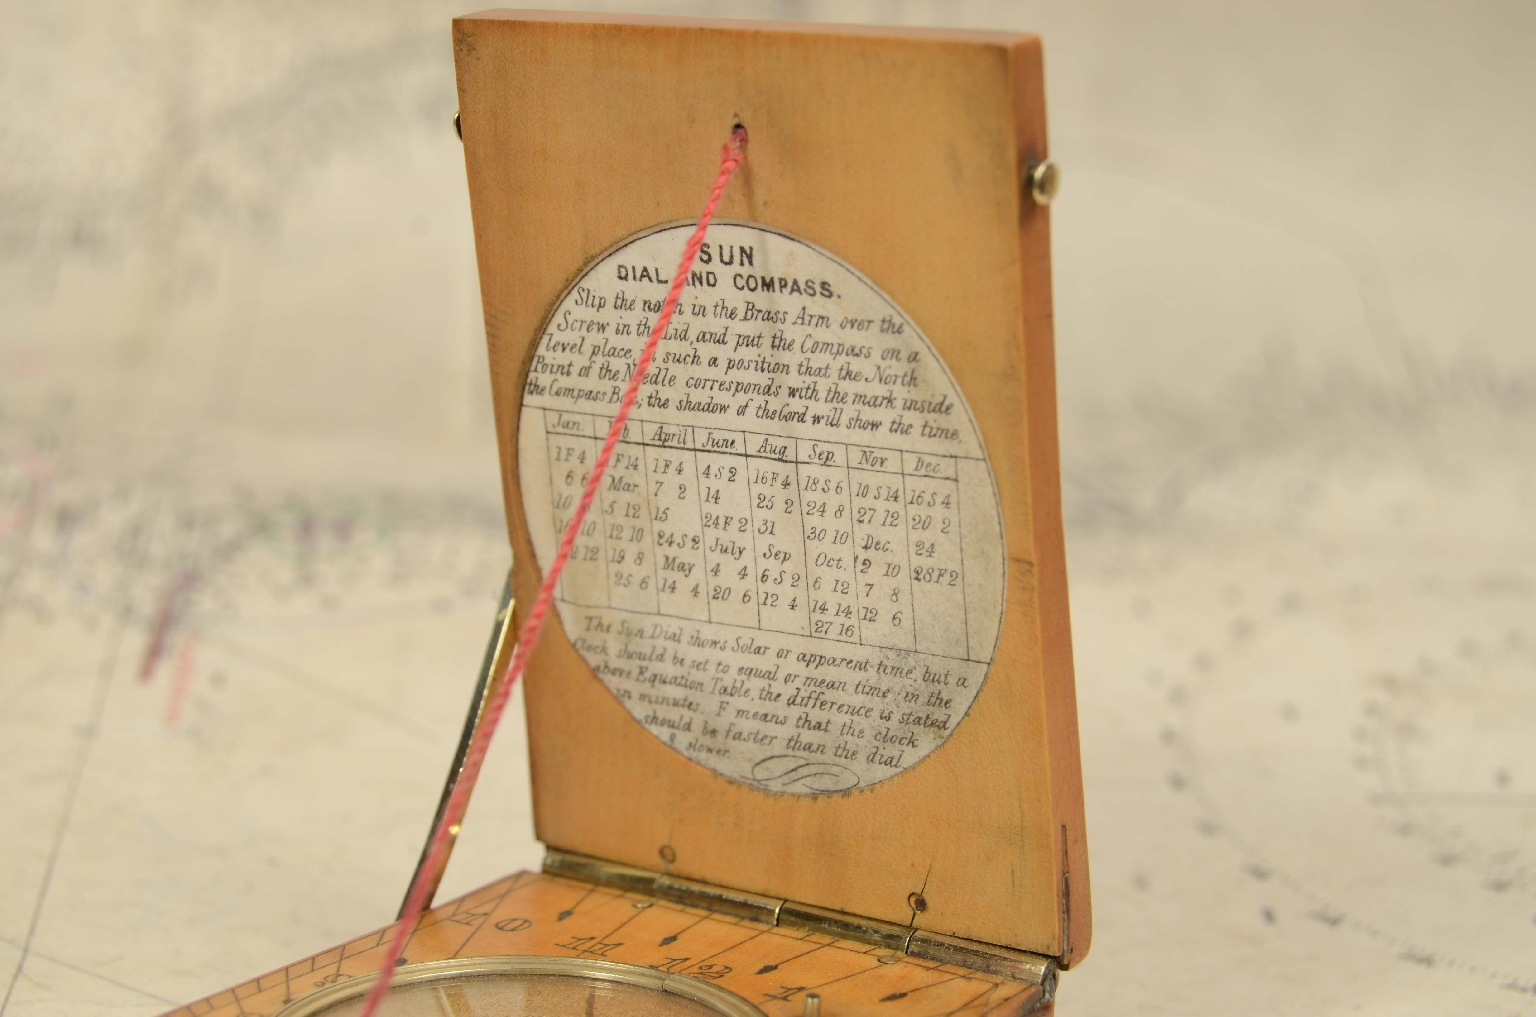 SUN
DIAL AND COMPASS.
Slip the notch in the Brass Arm over the
Screw in the Lid, and put the Compass on a
level place, in such a position that the North
Point of the Needle corresponds with the mark inside
the Compass Box; the shadow of the Cord will show the time.
Jan. Feb. April June. Aug. Sep. Nov Dec.
1 F 4 1 F 14 1 F 4 4 S 2 16 F 4 18 S 6 10 S 14 16 S 4
6 6 Mar 7 2 14 25 2 24 8 27 12 20 2
10 5 12 15 24 F 2 31 30 10 Dec. 24
10 12 10 24 S 2 July Sep Oct. 2 10 28 F 2
12 19 8 May 4 4 6 S 2 6 12 7 8
25 6 14 4 20 6 12 4 14 14 12 6
27 16
The Sun Dial shows Solar or apparent time, but a
Clock should be set to equal or mean time; in the
above Equation Table, the difference is stated
in minutes. F means that the clock
should be faster than the dial
S slower